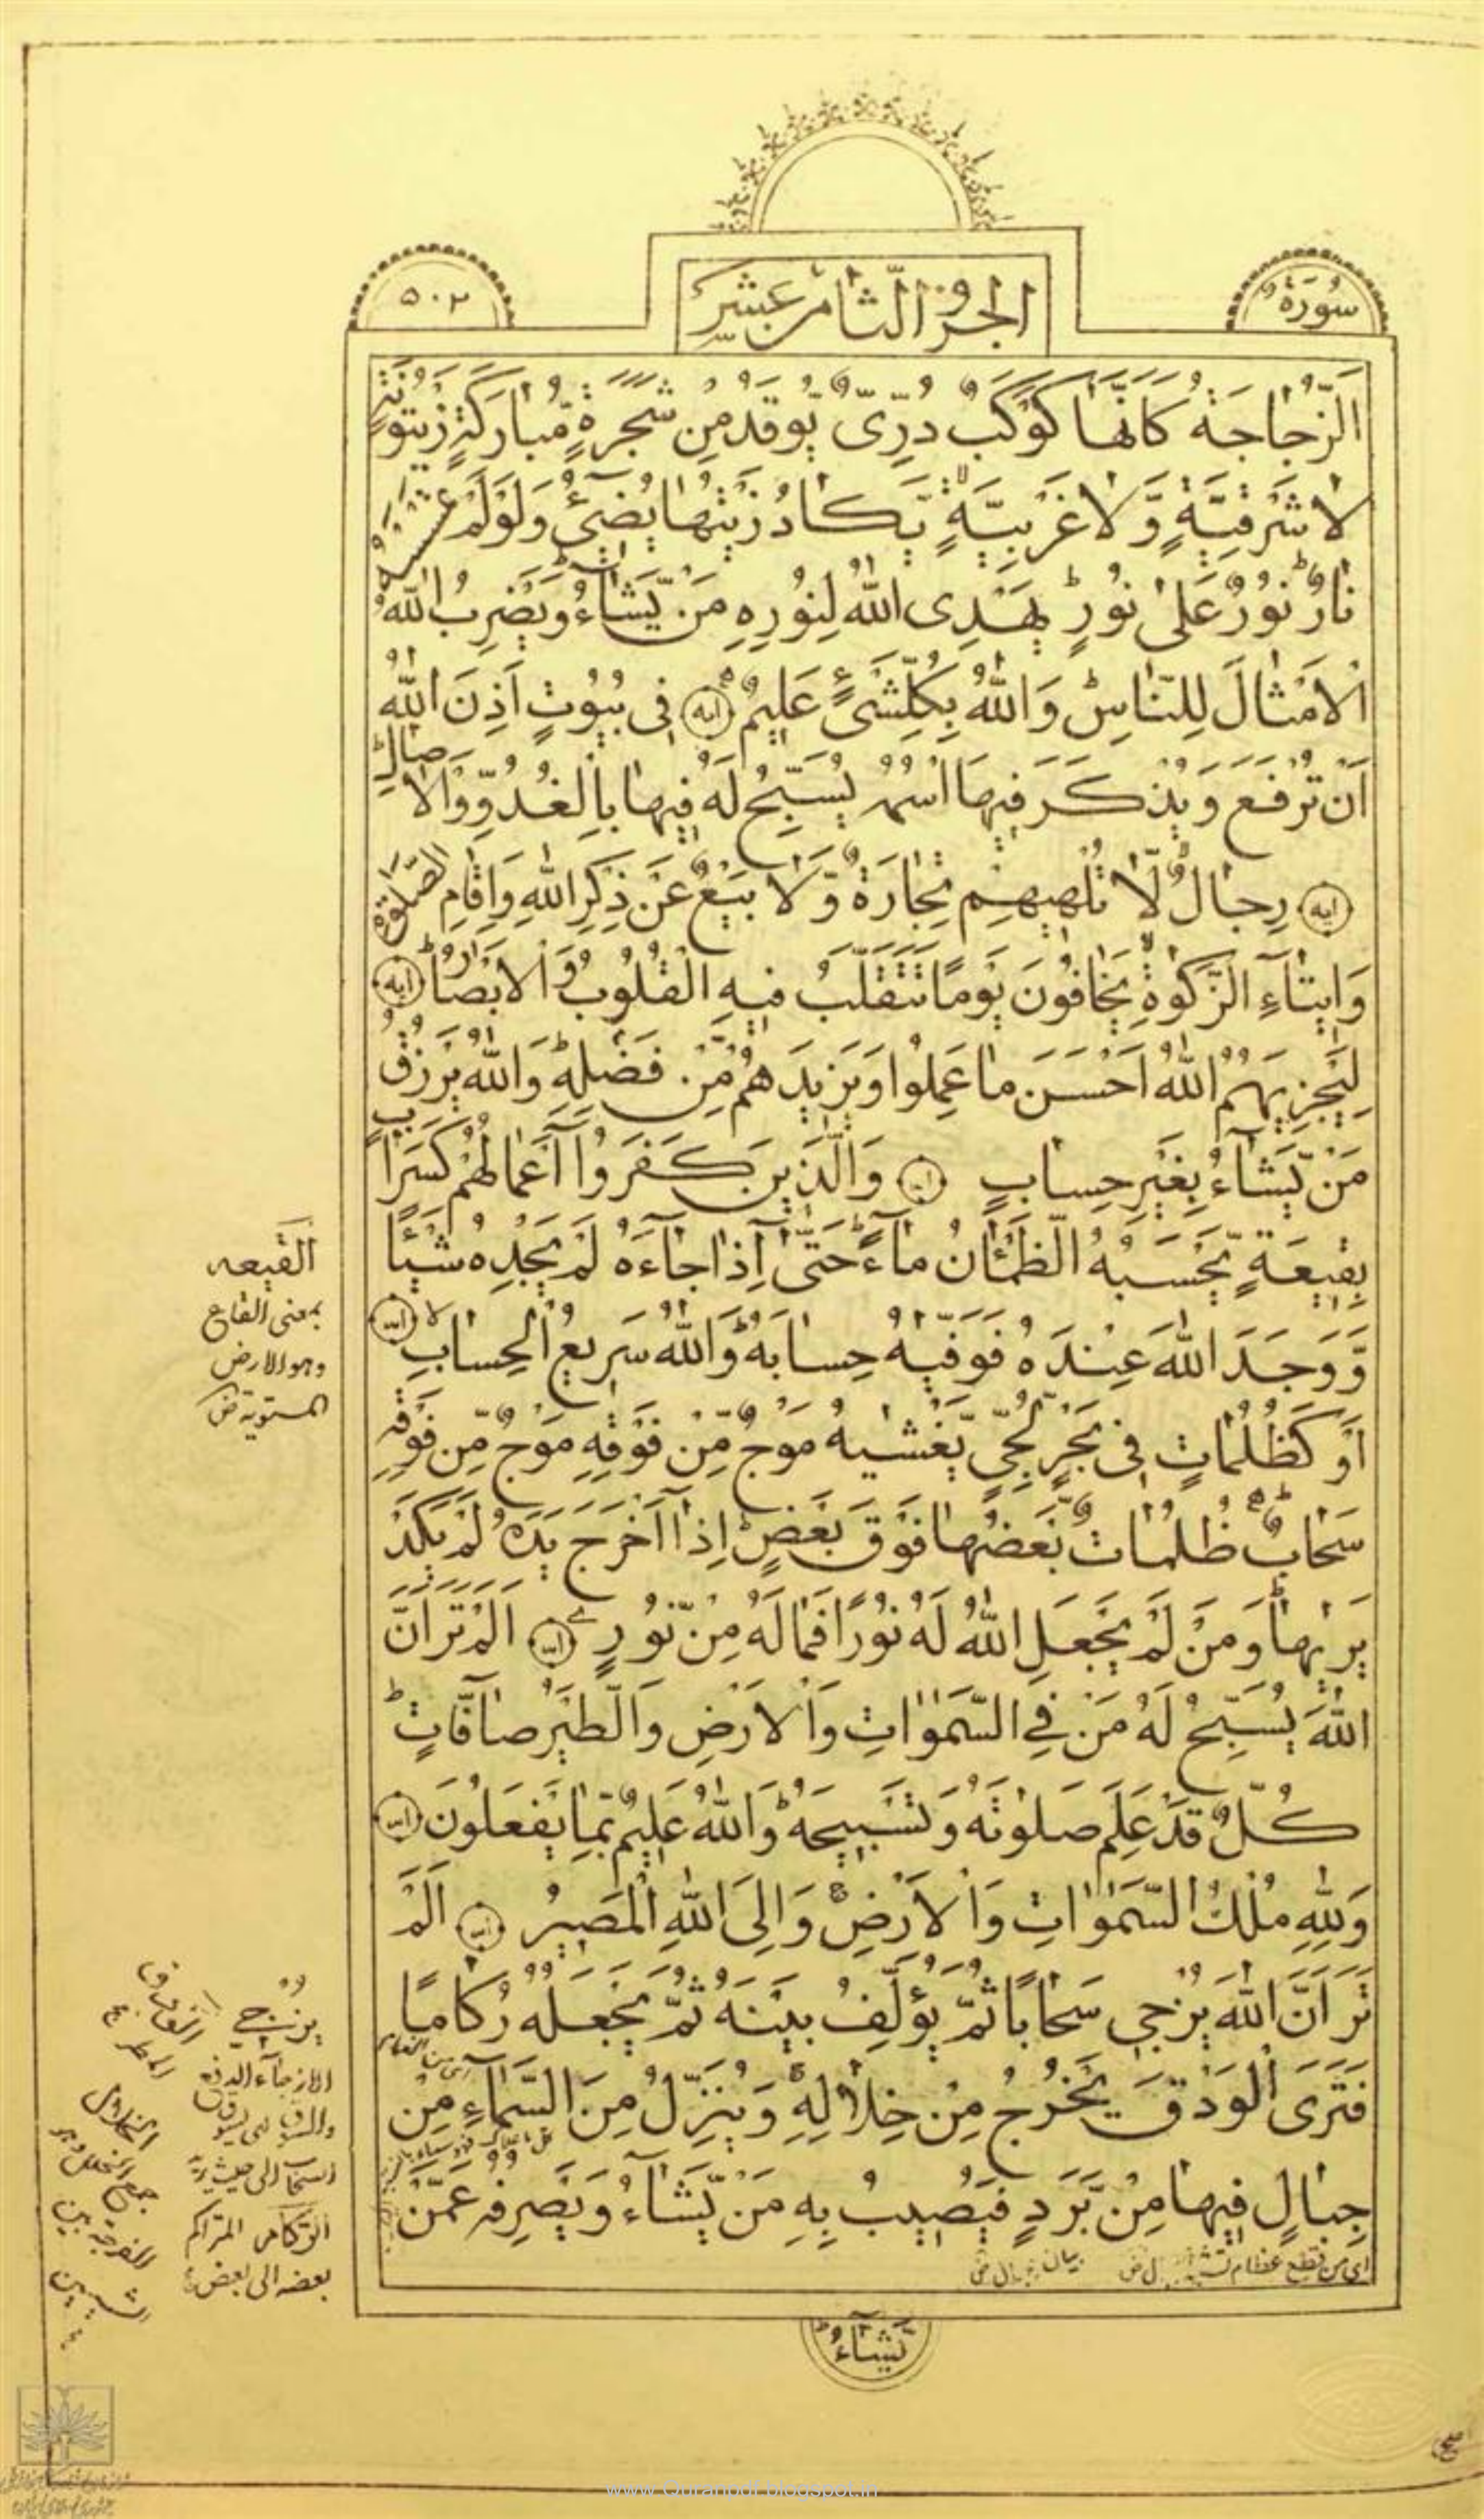 سُورَةُ
الجزو الثامن عشر
٥٠٢
الزُّجاجَةُ كَاَنَّها كَوْكَبٌ دُرِّىٌّ يُّوقَدُ مِنْ شَجَرَةٍ مُّبارَكَةٍ زَيْتُونَةٍ
لا شَرْقِيَّةٍ وَّلا غَرْبِيَّةٍ يَّكادُ زَيْتُها يُضِىءُ وَلَوْلَمْ تَمْسَسْهُ
نارٌ نُورٌ عَلىٰ نُورٍ يَهْدِى اللّٰهُ لِنُورِهِ مَنْ يَّشاءُ وَيَضْرِبُ اللّٰهُ
الْاَمْثالَ لِلنّاسِ وَاللّٰهُ بِكُلِّ شَىْءٍ عَلِيمٌ ايه فِى بُيُوتٍ اَذِنَ اللّٰهُ
اَنْ تُرْفَعَ وَيُذْكَرَ فِيهَا اسْمُهُ يُسَبِّحُ لَهُ فِيها بِالْغُدُوِّ وَالْاٰصالِ
ايه رِجالٌ لّا تُلْهِيهِمْ تِجارَةٌ وَّلا بَيْعٌ عَنْ ذِكْرِ اللّٰهِ وَاِقامِ الصَّلٰوةِ
وَاِيتاءِ الزَّكٰوةِ يَخافُونَ يَوْمًا تَتَقَلَّبُ فِيهِ الْقُلُوبُ وَالْاَبْصارُ ايه
لِيَجْزِيَهُمُ اللّٰهُ اَحْسَنَ ما عَمِلُوا وَيَزِيدَهُمْ مِّنْ فَضْلِهِ وَاللّٰهُ يَرْزُقُ
مَنْ يَّشاءُ بِغَيْرِ حِسابٍ ايه وَالَّذِينَ كَفَرُوا اَعْمالُهُمْ كَسَرابٍ
بِقِيعَةٍ يَّحْسَبُهُ الظَّمْاٰنُ ماءً حَتّىٰ اِذا جاءَهُ لَمْ يَجِدْهُ شَيْئًا
وَّوَجَدَ اللّٰهَ عِنْدَهُ فَوَفّٰيهُ حِسابَهُ وَاللّٰهُ سَرِيعُ الْحِسابِ ايه
اَوْ كَظُلُماتٍ فِى بَحْرٍ لُّجِّىٍّ يَّغْشٰيهُ مَوْجٌ مِّنْ فَوْقِهِ مَوْجٌ مِّنْ فَوْقِهِ
سَحابٌ ظُلُماتٌ بَعْضُها فَوْقَ بَعْضٍ اِذا اَخْرَجَ يَدَهُ لَمْ يَكَدْ
يَرٰيها وَمَنْ لَمْ يَجْعَلِ اللّٰهُ لَهُ نُورًا فَمالَهُ مِنْ نُّورٍ ايه اَلَمْ تَرَ اَنَّ
اللّٰهَ يُسَبِّحُ لَهُ مَنْ فِى السَّمٰوٰاتِ وَالْاَرْضِ وَالطَّيْرُ صافّاتٍ
كُلٌّ قَدْ عَلِمَ صَلٰوتَهُ وَتَسْبِيحَهُ وَاللّٰهُ عَلِيمٌ بِما يَفْعَلُونَ ايه
وَلِلّٰهِ مُلْكُ السَّمٰوٰاتِ وَالْاَرْضِ وَاِلَى اللّٰهِ الْمَصِيرُ ايه اَلَمْ
تَرَ اَنَّ اللّٰهَ يُزْجِى سَحابًا ثُمَّ يُؤَلِّفُ بَيْنَهُ ثُمَّ يَجْعَلُهُ رُكامًا
فَتَرَى الْوَدْقَ يَخْرُجُ مِنْ خِلالِهِ وَيُنَزِّلُ مِنَ السَّماءِ مِنْ
جِبالٍ فِيها مِنْ بَرَدٍ فَيُصِيبُ بِهِ مَنْ يَّشاءُ وَيَصْرِفُهُ عَمَّنْ
اى من قطع عظام
يَشاءُ
القيعه
بمعنى القاع
وهو الارض
المستوية
يزجى
السحاب الى حيث يريد
الركام المتراكم
بعضه الى بعض
www.Quranpdf.blogspot.in